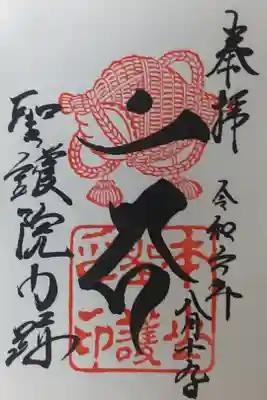 奉拝
令和六年
八月十九日
聖護院門跡
本山
聖護
院印